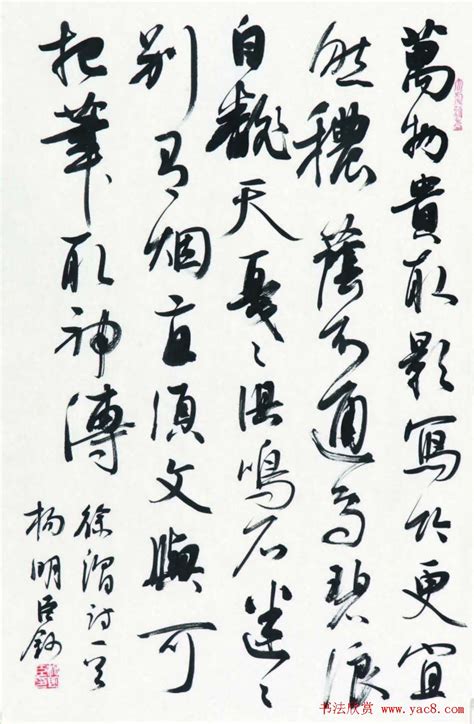 萬物貴取影寫竹更宜
然穠蔭不通鳥碧浪
自翻天戛〻俱鳴石迷〻
别有烟直須文與可
把筆取神傳
徐渭詩一首
楊明臣錄
书法欣赏 www.yac8.com